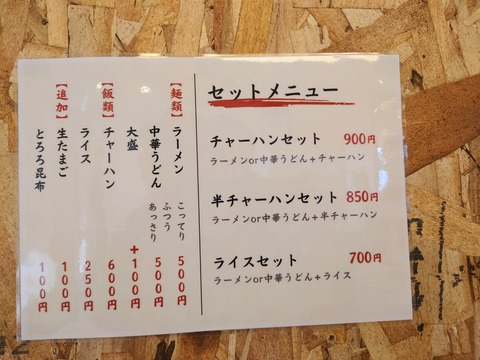 【麺類】
ラーメン こってり ふつう あっさり 500円
中華うどん 500円
大盛 +100円
【飯類】
チャーハン 600円
ライス 250円
【追加】
生たまご 100円
とろろ昆布 100円
セットメニュー
チャーハンセット 900円
ラーメンor中華うどん+チャーハン
半チャーハンセット 850円
ラーメンor中華うどん+半チャーハン
ライスセット 700円
ラーメンor中華うどん+ライス